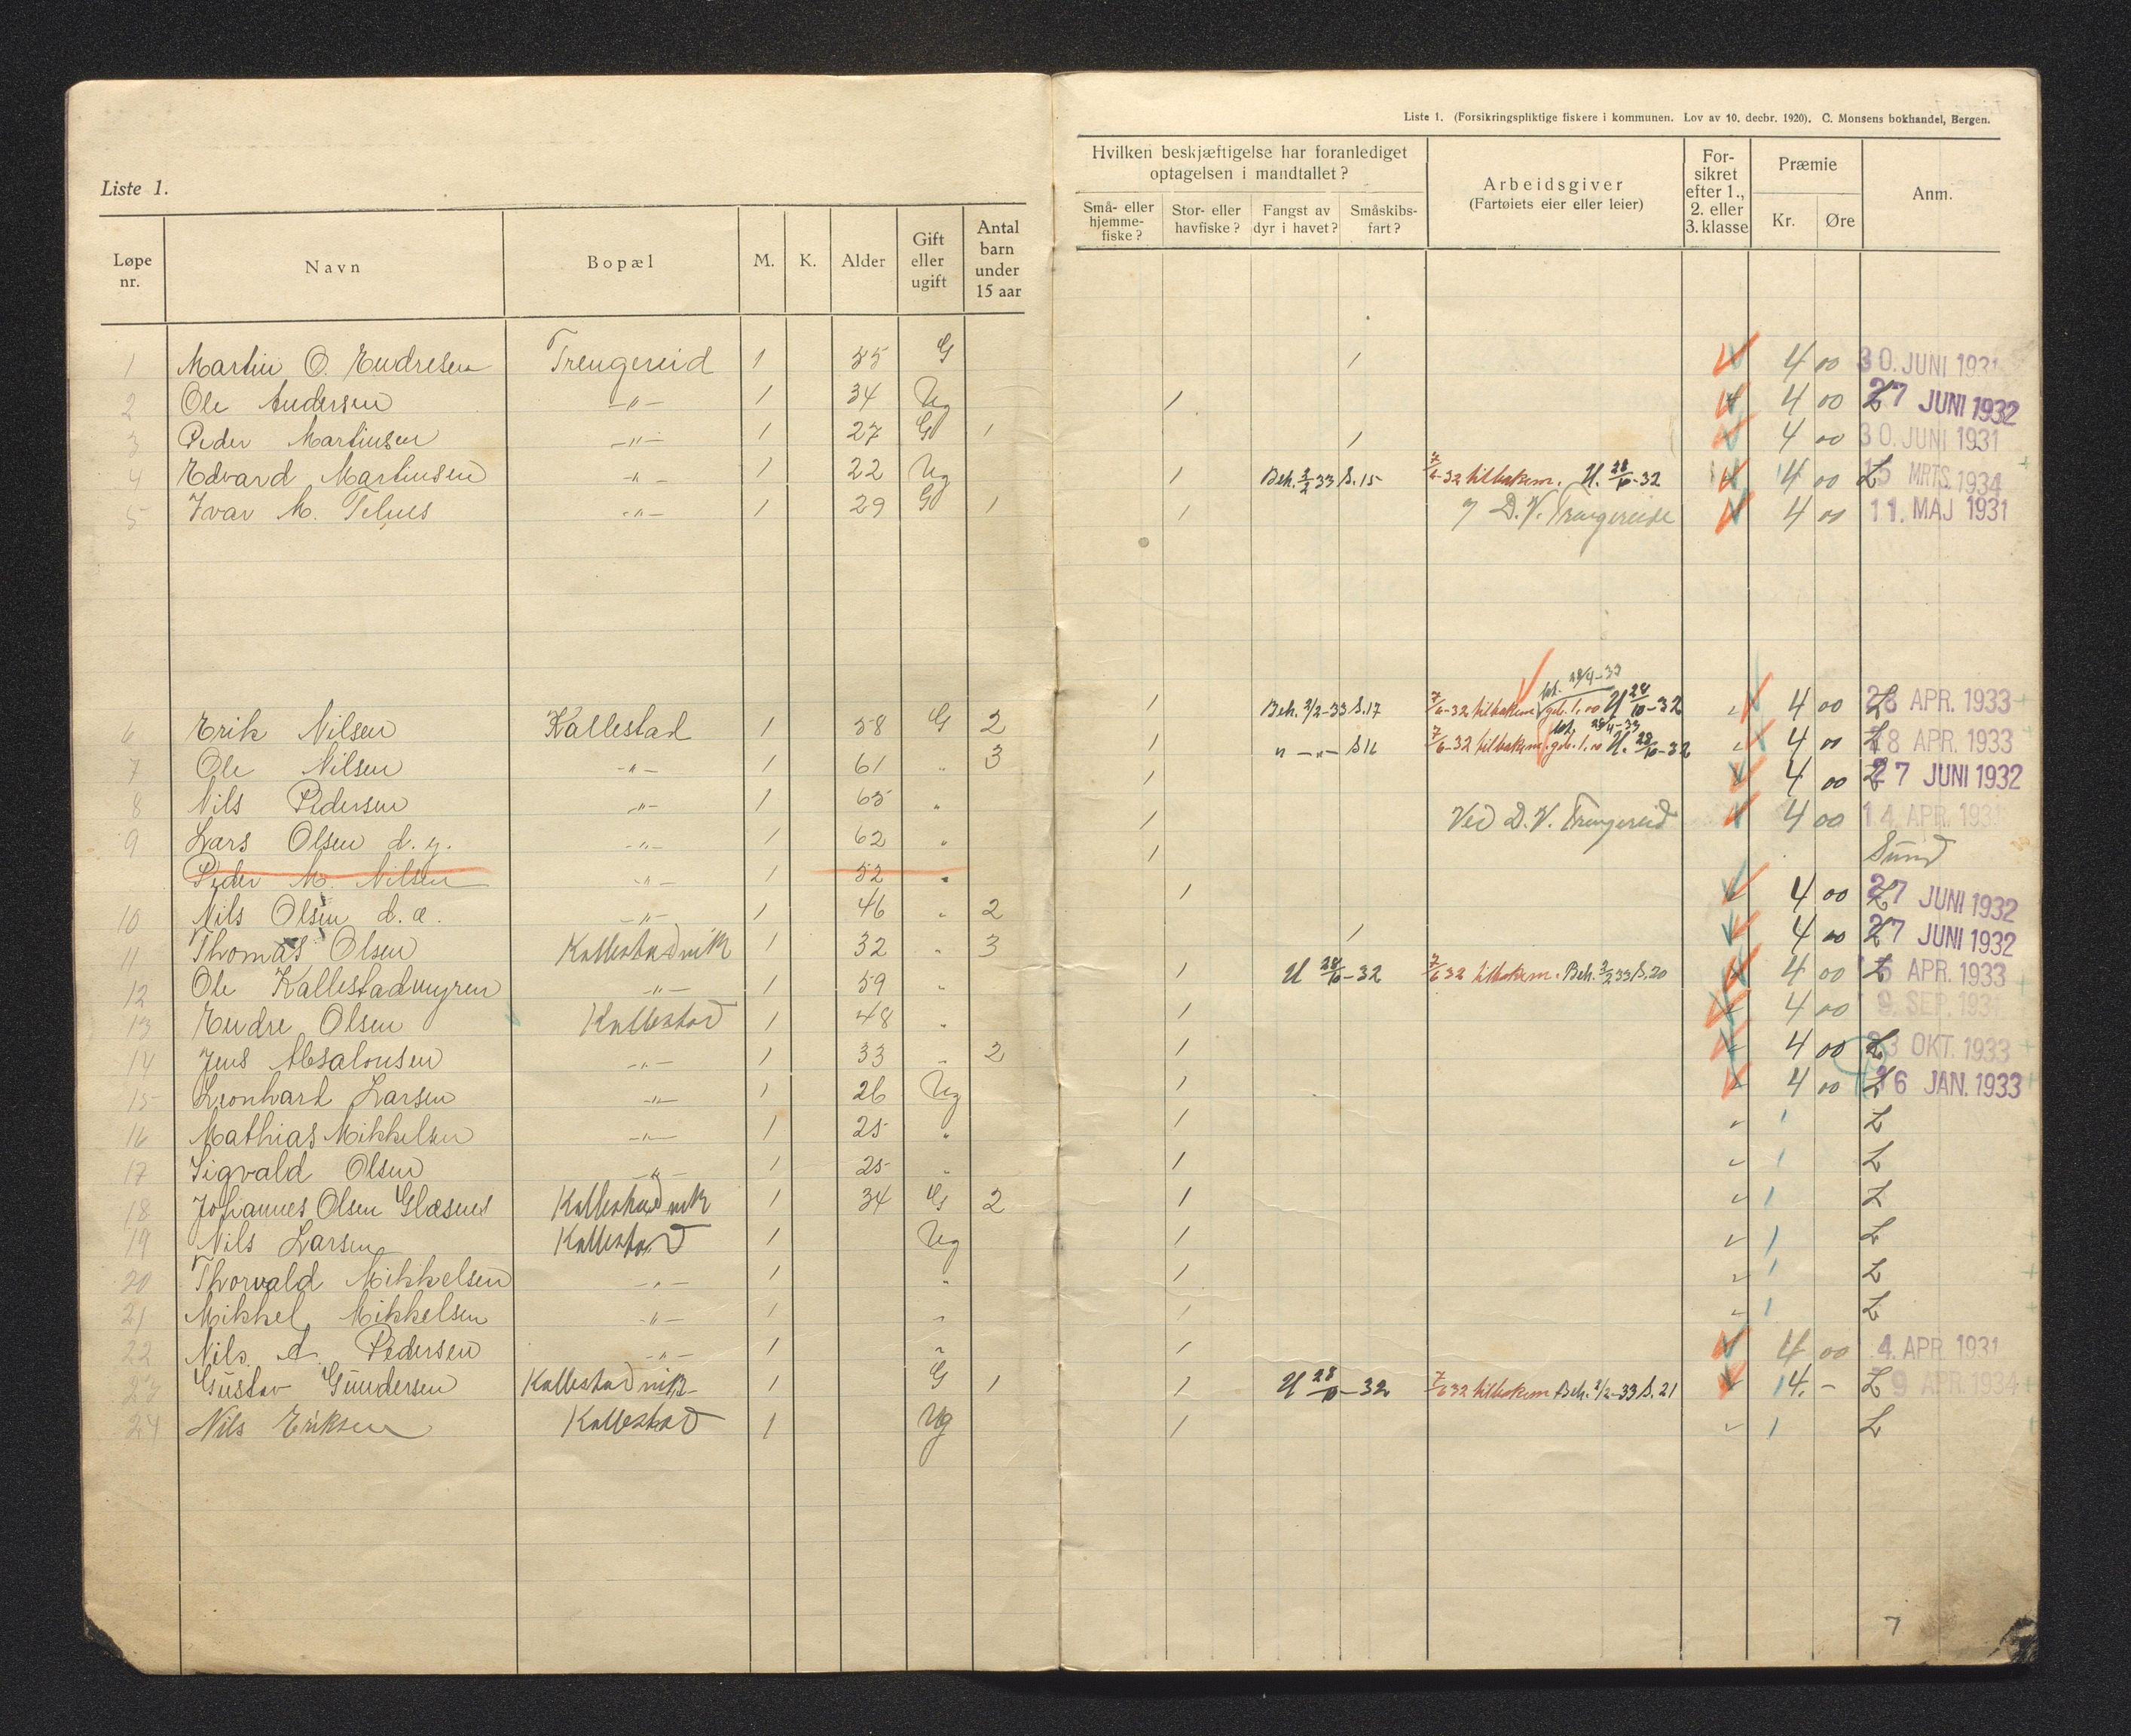 Liste 1.
Løpe nr. Navn Bopæl M. K. Alder Gift eller ugift Antal barn under 15 aar
1 Martin O. Endresen Trengereid 1 55 G
2 Ole Andersen -"- 1 34 Ug
3 Peder Martinsen -"- 1 27 G 1
4 Edvard Martinsen -"- 1 22 Ug
5 Ivar M. -"- 1 29 G 1
6 Erik Nilsen Kallestad 1 58 G 2
7 Ole Nilsen -"- 1 61 " 3
8 Nils Pedersen -"- 1 65 "
9 Lars Olsen d. y. -"- 1 62 "
Peder M. Nilsen -"- 1 52 "
10 Nils Olsen d. æ. -"- 1 46 " 2
11 Thomas Olsen Kallestadvik 1 32 " 3
12 Ole Kallestadmyren -"- 1 59 "
13 Endre Olsen Kallestad 1 48 "
14 Jens Absalonsen -"- 1 33 " 2
15 Leonhard Larsen -"- 1 26 Ug
16 Mathias Mikkelsen -"- 1 25 "
17 Sigvald Olsen -"- 1 25 "
18 Johannes Olsen Glæsnes Kallestadvik 1 34 G 2
19 Nils Larsen Kallestad 1 Ug
20 Thorvald Mikkelsen -"- 1 "
21 Mikkel Mikkelsen -"- 1 "
22 Nils A. Pedersen -"- 1 "
23 Gustav Gundersen Kallestadvik 1 G 1
24 Nils Eriksen Kallestad 1 Ug
Liste 1. (Forsikringspliktige fiskere i kommunen. Lov av 10. decbr. 1920). C. Monsens bokhandel, Bergen.
Hvilken beskjæftigelse har foranlediget optagelsen i mandtallet?
Små- eller hjemmefiske? Stor- eller havfiske? Fangst av dyr i havet? Småskibsfart?
Arbeidsgiver (Fartøiets eier eller leier)
Forsikret efter 1., 2. eller 3. klasse
Præmie Kr. Øre
Anm.
1 4 00 30. JUNI 1931
1 4 00 L 27 JUNI 1932
1 4 00 30. JUNI 1931
1 Beh. 2/2 33 S. 15 7/6-32 tilbakem. U. 28/10-32 4 00 L 15 MRTS. 1934
1 D. V. Trengereide 4 00 11. MAJ 1931
1 Beh. 2/2-33 S. 17 7/6-32 tilbakem. geb. 1.00 bet. 28/4-33 U 28/10-32 4 00 L 28 APR. 1933
1 " -"- S 16 7/6-32 tilbakem. geb. 1.00 bet. 28/4-33 U. 28/10-32 4 00 L 28 APR. 1933
1 4 00 L 27 JUNI 1932
1 Ved D. V. Trengereid 4 00 14. APR. 193
1 Sund
1 4 00 L 27 JUNI 1932
1 4 00 L 27 JUNI 1932
1 U 28/10-32 7/6 32 tilbakem. Beh. 2/2 33 S. 20 4 00 L APR. 1933
1 4 00 9. SEP. 193
1 4 00 L 23 OKT. 1933
1 4 00 L 16 JAN. 1933
1 1 L
1 1 L
1 1 L
1 1 L
1 1 L
1 1 L
1 4 00 4. APR. 1931
1 U 28/10-32 7/6 32 tilbakem Beh. 2/2-33 S. 21 14. - L 9 APR. 1934
1 1 L
7